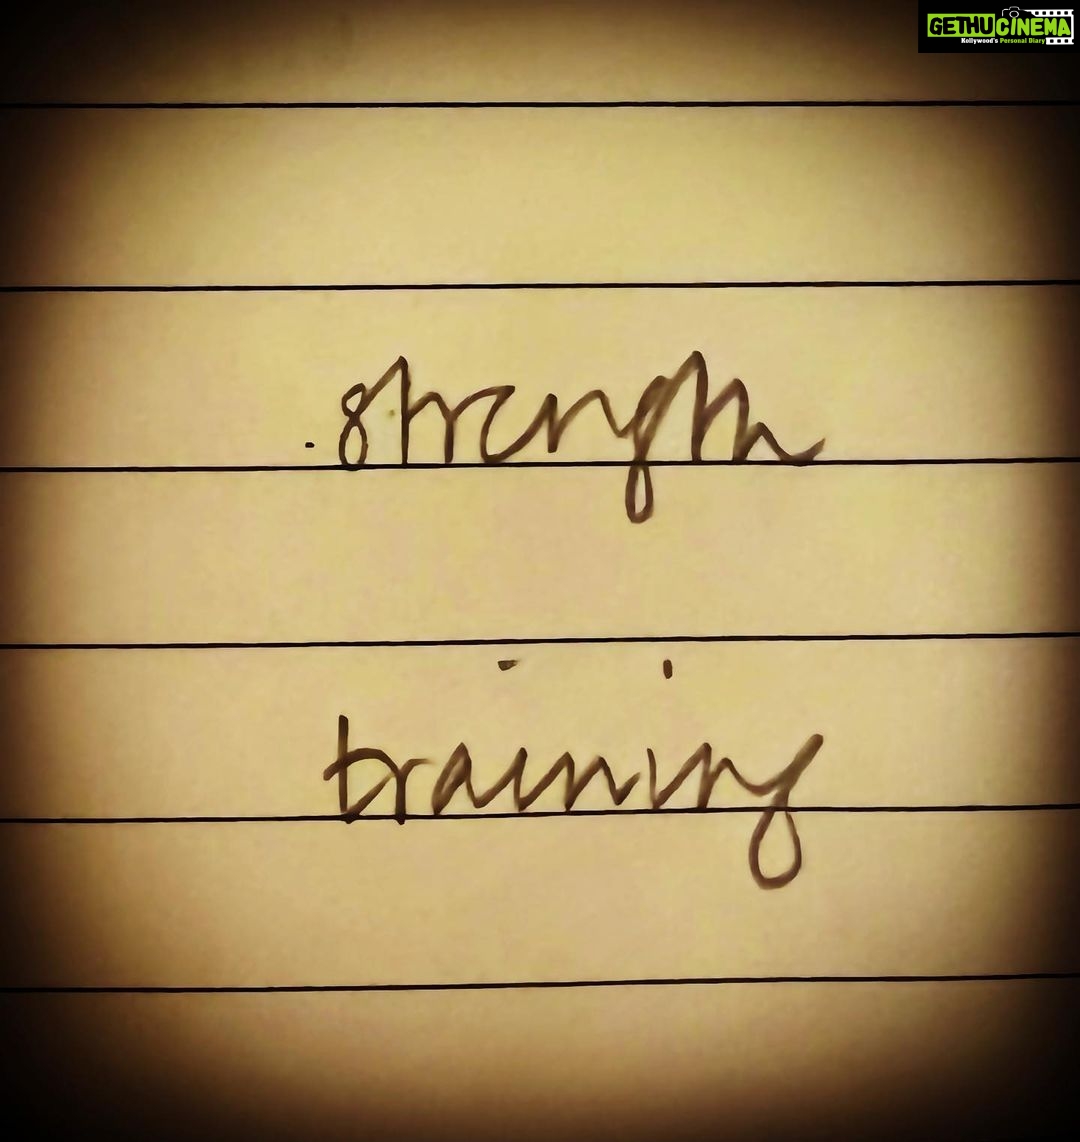 GETHUCINEMA
Kollywood's Personal Diary
strength
training